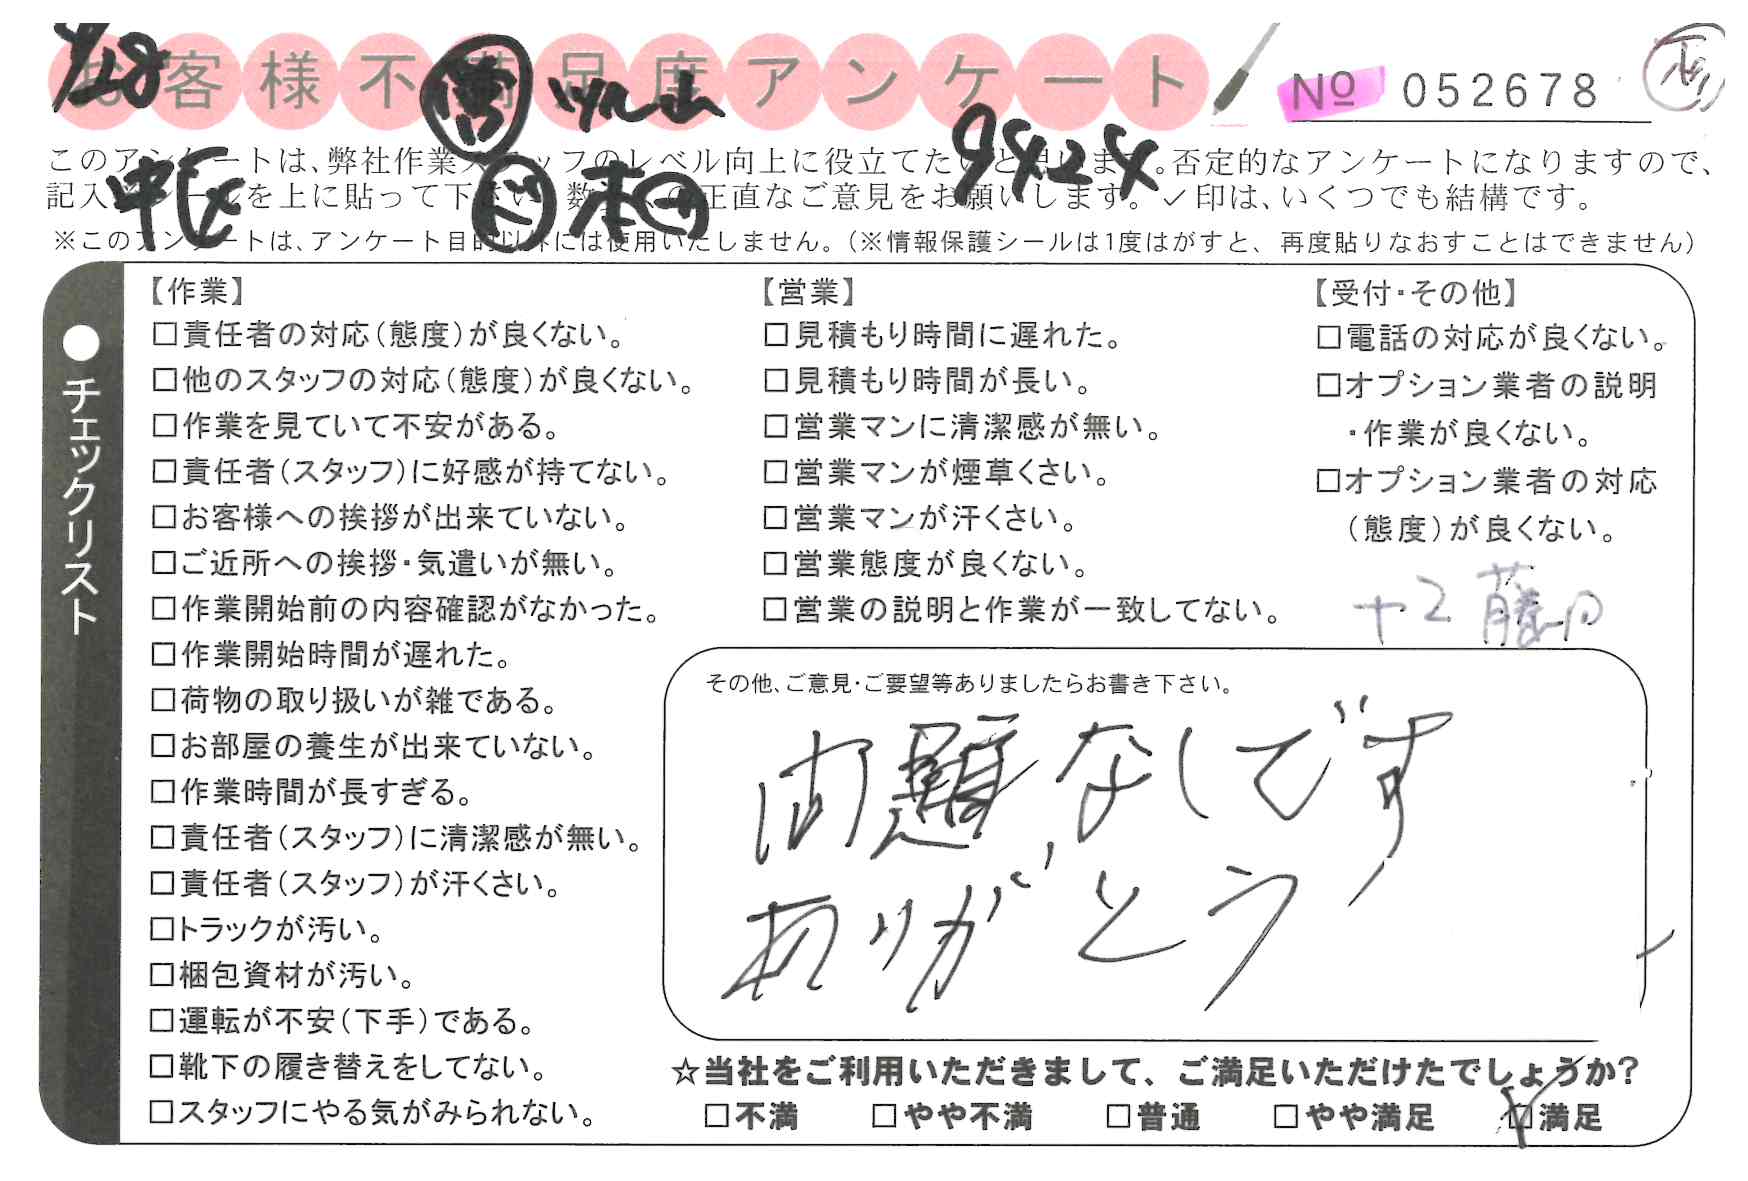 4/28
お客様不満足度アンケート
No 052678
このアンケートは、弊社作業スタッフのレベル向上に役立てたいと思います。否定的なアンケートになりますので、
記入後シールを上に貼って下さい。数多くの正直なご意見をお願いします。✓印は、いくつでも結構です。
9424
中区
※このアンケートは、アンケート目的以外には使用いたしません。（※情報保護シールは1度はがすと、再度貼りなおすことはできません）
●チェックリスト
【作業】
□責任者の対応（態度）が良くない。
□他のスタッフの対応（態度）が良くない。
□作業を見ていて不安がある。
□責任者（スタッフ）に好感が持てない。
□お客様への挨拶が出来ていない。
□ご近所への挨拶・気遣いが無い。
□作業開始前の内容確認がなかった。
□作業開始時間が遅れた。
□荷物の取り扱いが雑である。
□お部屋の養生が出来ていない。
□作業時間が長すぎる。
□責任者（スタッフ）に清潔感が無い。
□責任者（スタッフ）が汗くさい。
□トラックが汚い。
□梱包資材が汚い。
□運転が不安（下手）である。
□靴下の履き替えをしてない。
□スタッフにやる気がみられない。
【営業】
□見積もり時間に遅れた。
□見積もり時間が長い。
□営業マンに清潔感が無い。
□営業マンが煙草くさい。
□営業マンが汗くさい。
□営業態度が良くない。
□営業の説明と作業が一致してない。
【受付・その他】
□電話の対応が良くない。
□オプション業者の説明
・作業が良くない。
□オプション業者の対応
（態度）が良くない。
その他、ご意見・ご要望等ありましたらお書き下さい。
問題なしです
ありがとう
☆当社をご利用いただきまして、ご満足いただけたでしょうか?
□不満 □やや不満 □普通 □やや満足 ☑満足